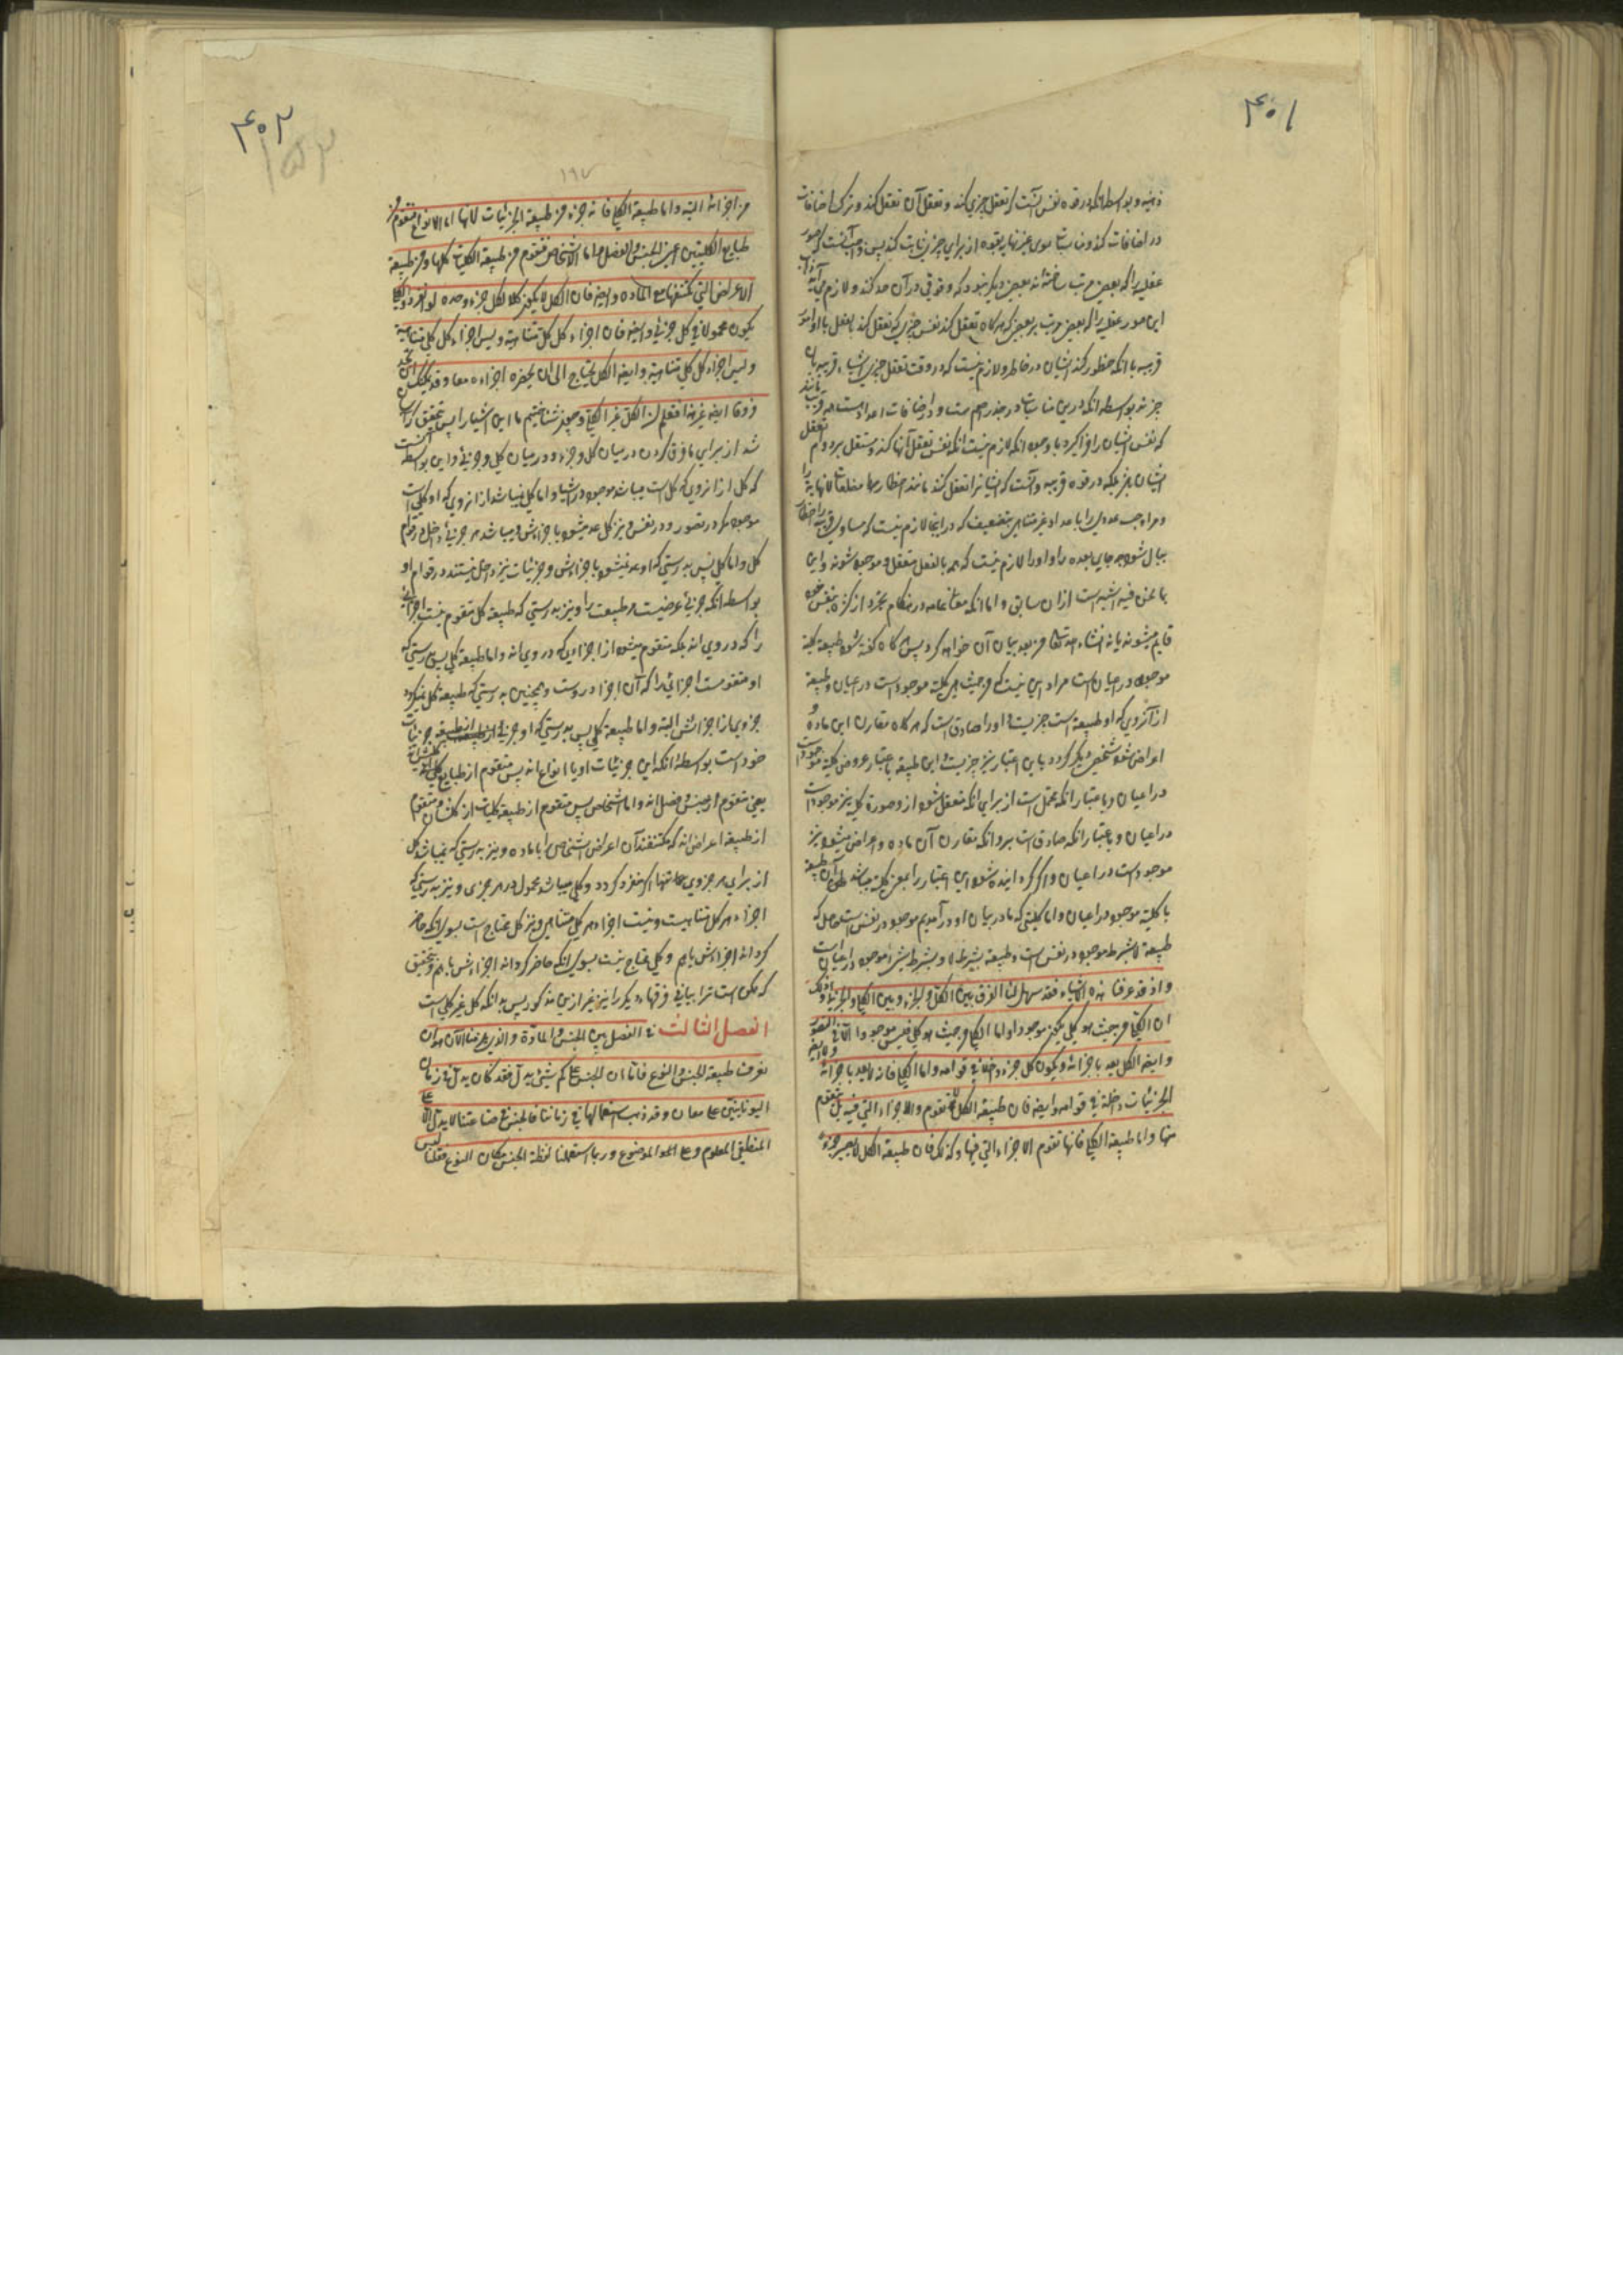 ۴۰۱
ذهنیه و بواسطه آنکه در قوه نفس آنست که تعقل چیزی کند و تعقل آن تعقل کند و ترک اضافات
در اضافات کند و مناسبات سوی غیرنهایه بقوه از برای چیز اثبات کند پس واجب آنست که صور
عقلی را که بعضی مرتب باشند بر بعضی دیگر نبود که وقوفی در آن حد کند و لازم می آید
این صور عقلی را که بعضی مرتب بر بعضی که هرگاه تعقل کند نفس چیزی که تعقل کند بالفعل با او امور
قریبه با آنکه خطور کند ایشان در خاطر و لازم نیست که در وقت تعقل چیزی اشیاء قریبه بان
چیز نه بواسطه آنکه درین مناسبات در جذر اصم است و در اضافات اعداد است همه قریب
که نفس ایشان را فرا گیرد با وجود آنکه لازم نیست آنکه نفس تعقل آنها کند و مستقل بر دوام
ایشان باشد بلکه در قوه قریبه و آنست که ایشانرا تعقل کند مانند اخطار مضلعات لانهایه را
و مزاوجت عددی را با عداد غیر متناهی بتضعیف که در اینجا لازم نیست که مساوی
ببال شود هر جای بعده را و او را لازم نیست که همه بالفعل متعقل و موجود شوند و این
بما نحن فیه اشبه است از ان سابق و اما آنکه معانی عامه در هنگام تجرد از کثره بنفس خود
قایم میشوند یا نه انشاء الله تعالی من بعد بیان آن خواهد کرد پس هرگاه گفته شود طبیعه کلیه
موجود در اعیان است مراد این نیست که من حیث هی کلیه موجود است در اعیان و طبیعه
از آنروی که او طبیعه است چیزیست و او را صادق است که هرگاه مقارن این ماده و
اعراض شود شخص دیگر گردد باین اعتبار نیز چیزیست و این طبیعه باعتبار عروض کلیه موجود است
در اعیان و باعتبار آنکه محتمل است از برای آنکه متعقل شود از و صورة کلیه نیز موجود است
در اعیان و باعتبار آنکه صادق است برو آنکه مقارن آن ماده و اعراض میشود نیز
موجود است در اعیان و اگر گردانیده شود این اعتبار را بمعنی کلیه میباشد آن طبیعه
با کلیه موجود در اعیان و اما کلیتی که ما در بیان او در آمدیم موجود در نفس است حاصل که
طبیعه لا بشرط موجود در نفس است و طبیعه بشرط لا و بشرط شیء موجود در اعیان است
و اذ قد عرفنا هذه الاشیاء فقد سهل لنا الفرق بین الکل و الجزء و بین الکلی و الجزئی و ذلک
ان الکل من حیث هو کل یکون موجودا و اما الکلی من حیث هو کلی فلیس موجودا الا فی التصور
و ایضا الکل یعد باجزائه و یکون کل جزء داخلا فی قوامه و اما الکلی فانه لا یعد باجزائه و لا ایضا
الجزئیات داخلة فی قوامه و ایضا فان طبیعة الکل لا تقوم الاجزاء التی فیه بل تتقوم
منها و اما طبیعة الکلی فانها تقوم الاجزاء التی فیها و کذلک فان طبیعة الکل لا یصیر جزء
۴۰۲
۱۹۷
من اجزائه البته و اما طبیعة الکلی فانه جزء من طبیعة الجزئیات لانها اما الانواع فتقوم من
طبایع الکلیتین اعنی الجنس و الفصل و اما الاشخاص فتقوم من طبیعة الکلیات کلها و من طبیعة
الاعراض التی تکتنفها مع المادة و ایضا فان الکل لا یکون کلا لکل جزء وحده لو انفرد و الکلی
یکون محمولا فی کل جزئی و ایضا فان اجزاء کل کل متناهیة و لیس اجزاء کل کلی متناهیة
و ایضا الکل یحتاج الی ان یحضره اجزاءه معا و قد یمکنک ان تجد
فروقا ایضا غیر هذا فتعلم ان الکل غیر الکلی و چون شناختیم ما این اشیا را پس بتحقیق آسان
شد از برای ما فرق کردن در میان کل و جزء و در میان کلی و جزئی و این بواسطه آنست
که کل از آنروی که کل است میباشد موجود در اشیا و اما کلی نمیباشد از آنروی که او کلی است
موجود مگر در تصور و در نفس و نیز کل عد میشود باجزاءش و میباشد هر جزئی داخل در قوام
کل و اما کلی پس بدرستی که او عد نمیشود باجزاءش و جزئیات نیز داخل نیستند در قوام او
بواسطه آنکه جزئی عرضیست مر طبیعت را و نیز بدرستی که طبیعه کل مقوم نیست اجزائی
را که در وی اند بلکه متقوم میشود از اجزایی که در وی اند و اما طبیعه کلی پس بدرستی که
او مقوم است اجزائی را که آن اجزا در وست و همچنین بدرستی که طبیعه کل نمیگردد
جزوی از اجزائش البته و اما طبیعه کلی پس بدرستی که او جزئی از طبیعه جزئیات
خود است بواسطه آنکه این جزئیات او یا انواع اند پس متقوم از طبایع کلی اند
یعنی متقوم از جنس و فصل اند و اما اشخاص پس متقوم از طبیعه کلیات از کلشان و متقوم
از طبیعه اعراض اند که مکتنفند آن اعراض اشخاص را با ماده و نیز بدرستی که نمیباشد کل
از برای هر جزوی تنها اگر منفرد گردد و کلی میباشد محمول در هر جزی و نیز بدرستی که
اجزاء هر کل متناهیست و نیست اجزاء هر کلی متناهی و نیز کل محتاج است بسوی آنکه حاضر
گرداند اجزاءش باهم و کلی محتاج نیست بسوی آنکه حاضر گرداند اجزاءش باهم و بتحقیق
که ممکن است ترا بیابی فرقهاء دیگر را نیز غیر ازین مذکور پس بدانکه کل غیر کلی است
الفصل الثالث فی الفصل بین الجنس و المادة و الذی یلزمنا الآن هو ان
نعرف طبیعة الجنس و النوع فاما ان الجنس علی کم شیء یدل فقد کان یدل فی زمان
الیونانیین علی معان و قد ذهب استعمالها فی زماننا فالجنس فی صناعتنا لا یدل الا علی
المنطقی المعلوم و علی الموضوع و ربما استعملنا لفظة الجنس مکان النوع فقلنا لیس